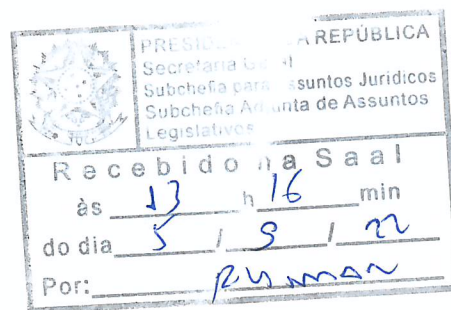 PRESIDÊNCIA DA REPÚBLICA
Secretaria Geral
Subchefia para Assuntos Jurídicos
Subchefia Adjunta de Assuntos
Legislativos
Recebido na Saal
às 13 h 16 min
do dia 5 / 9 / 22
Por: